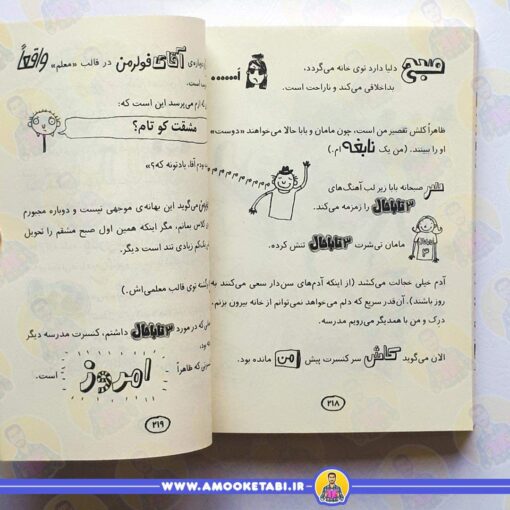 صبح دنیا دارد توی خانه می‌گردد،
بداخلاقی می‌کند و ناراحت است.
ظاهراً کلش تقصیر من است، چون مامان و بابا حالا می‌خواهند «دوست»
او را ببینند. (من یک نابغه ام.)
سر صبحانه بابا زیر لب آهنگ‌های
۳تاباحال را زمزمه می‌کند.
مامان تی‌شرت ۳تاباحال تنش کرده.
آدم خیلی خجالت می‌کشد (از اینکه آدم‌های سن‌دار سعی می‌کنند به
روز باشند). آن‌قدر سریع که دلم می‌خواهد نمی‌توانم از خانه بیرون بزنم.
درک و من با همدیگر می‌رویم مدرسه.
الان می‌گوید کاش سر کنسرت پیش من مانده بود.
۲۱۸
درباره‌ی آقای فولرمن در قالب «معلم» واقعاً
است.
ازم می‌پرسد این است که:
مشقت کو تام؟
آقا، یادتونه که؟»
می‌گوید این بهانه‌ی موجهی نیست و دوباره مجبورم
کلاس بمانم، مگر اینکه همین اول صبح مشقم را تحویل
زیادی تند است دیگر.
توی قالب معلمی‌اش.)
که در مورد ۳تاباحال داشتم، کنسرت مدرسه دیگر
که ظاهراً امروز است.
۲۱۹
WWW.AMOOKETABI.IR